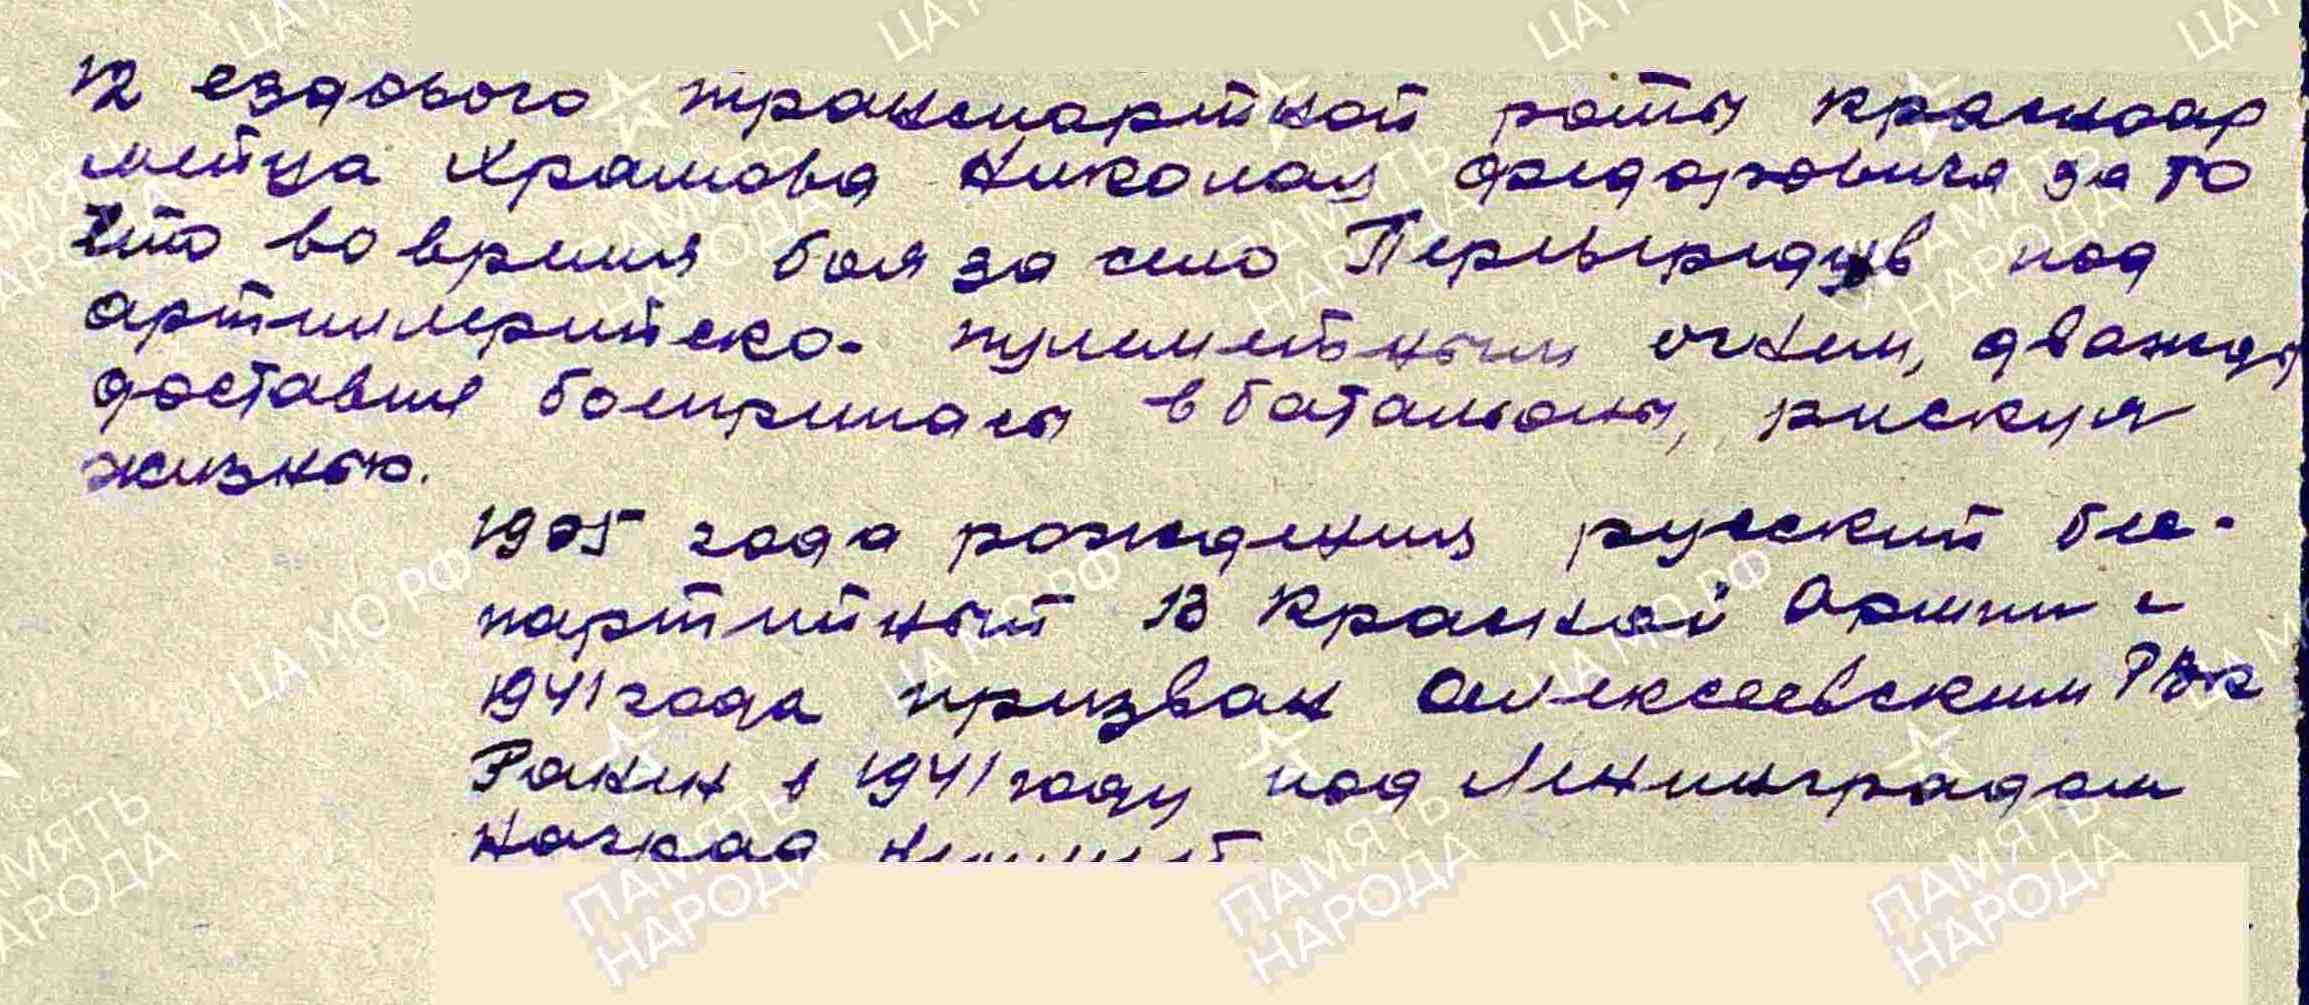 12 ездового транспортной роты красноар
мейца Храмова Николая Федоровича за то
что во время боя за село под
артиллерийско- пулеметным огнем, дважды
доставил боеприпасы в батальоны, рискуя
жизнью.
1905 года рождения русский бес-
партийный В Красной Армии с
1941 года призван Алексеевским РВК
Ранен в 1941 году под Ленинградом
Наград